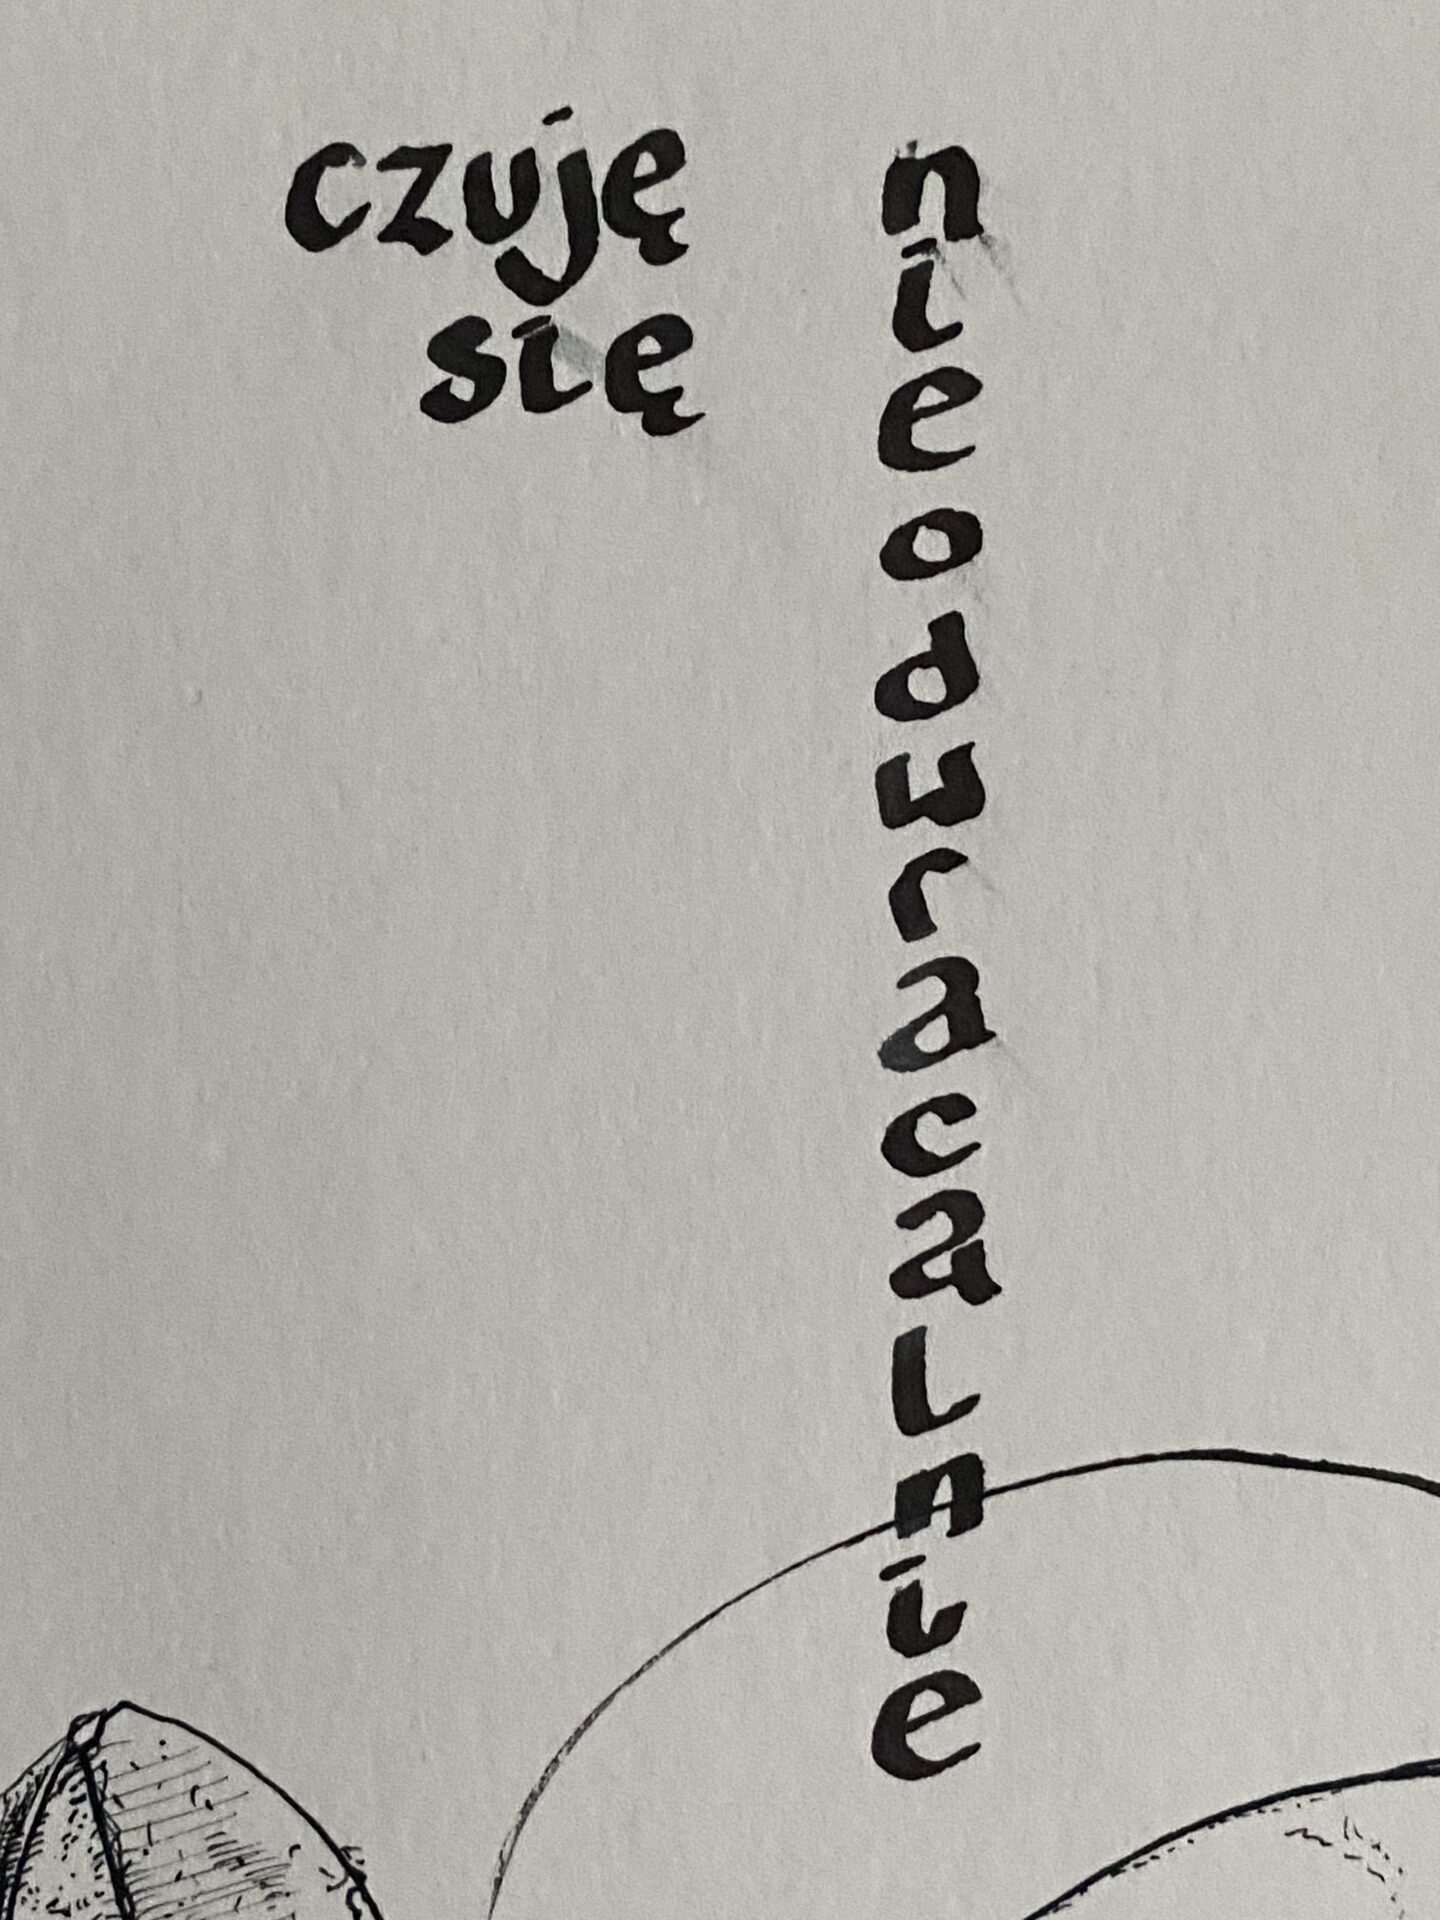 czuję
się
nieodwracalnie